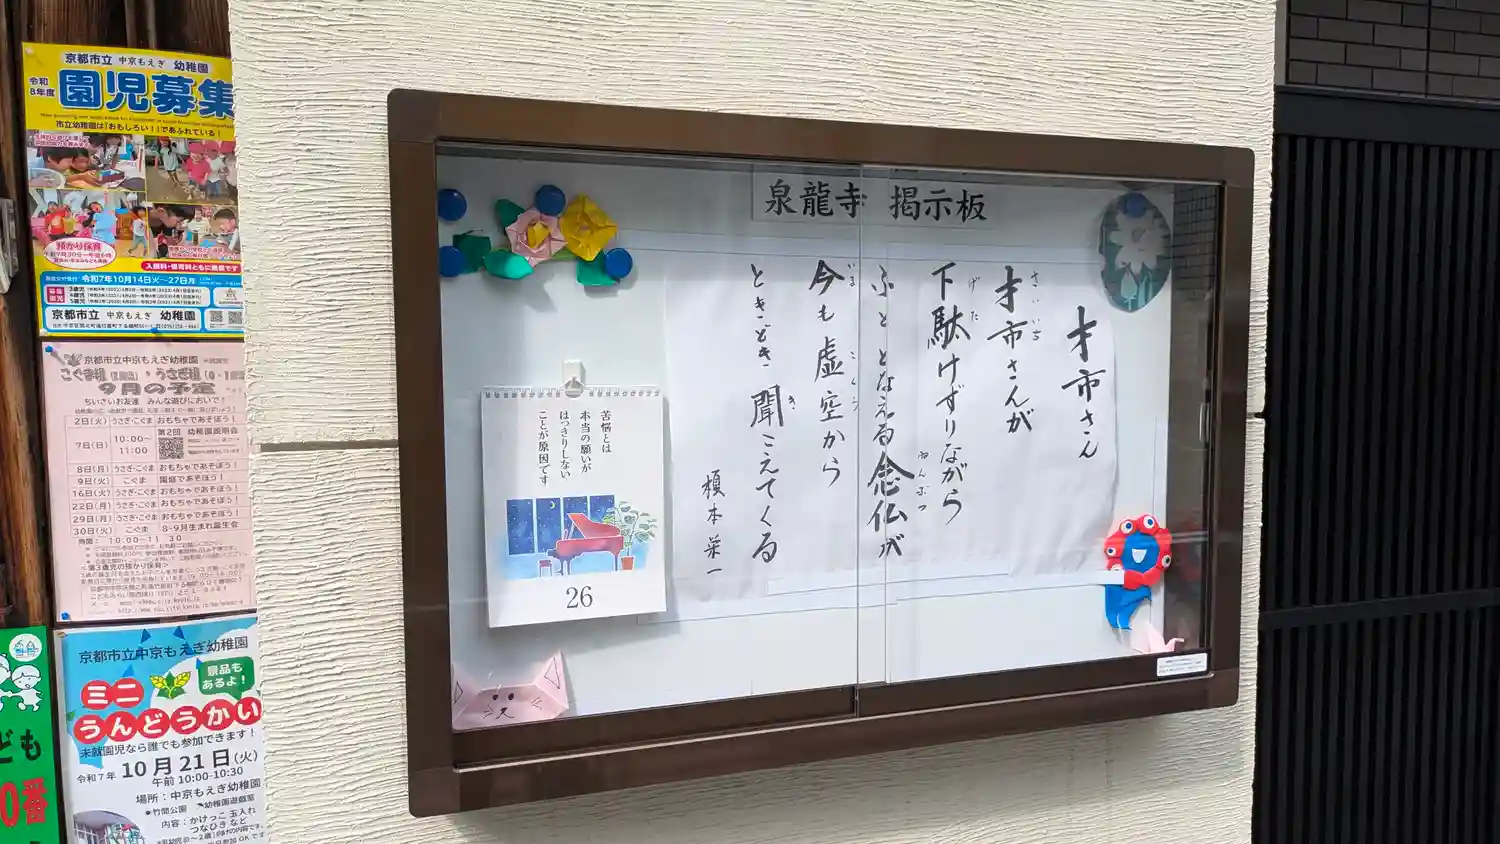 泉龍寺 掲示板
才市さん
才市さんが
さいいち
下駄けずりながら
げた
ふととなえる念仏が
ねんぶつ
今も虚空から
いま
こくう
ときどき聞こえてくる
き
榎本栄一
苦悩とは
本当の願いが
はっきりしない
ことが原因です
26
京都市立 中京もえぎ 幼稚園
令和
8年度
園児募集
市立幼稚園は「おもしろい!」であふれている!
預かり保育
入園料・保育料ともに無償です
令和7年10月14日火~27日月
募集
園児
3歳児
4歳児
5歳児
京都市立 中京もえぎ 幼稚園
京都市立中京もえぎ幼稚園
こぐま組
・うさぎ組
9月の予定
ちいさいお友達 みんな遊びにおいで!
2日(火) うさぎ・こぐま おもちゃであそぼう!
7日(日) 10:00~11:00 第2回 幼稚園説明会
8日(月) うさぎ・こぐま おもちゃであそぼう!
9日(火) こぐま 園庭であそぼう!
16日(火) うさぎ・こぐま おもちゃであそぼう!
22日(月) うさぎ・こぐま おもちゃであそぼう!
29日(月) うさぎ・こぐま おもちゃであそぼう!
30日(火) こぐま 8・9月生まれ誕生会
時間: 10:00~11:30
京都市立中京もえぎ幼稚園
景品も
あるよ!
ミニ
うんどうかい
未就園児なら誰でも参加できます!
令和7年 10月21日(火)
午前 10:00-10:30
場所:中京もえぎ幼稚園
竹間公園
幼稚園遊戯室
内容:かけっこ 玉入れ
つなひき など
ども
0番